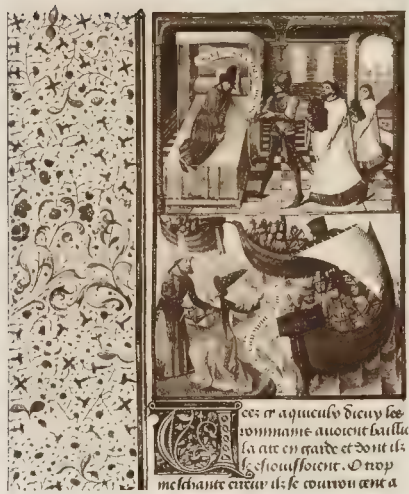 Veez cy aquieulx dieux les
rommains auoient baillie
la cite en garde et dont ilz
sesiouissoient. O trop
meschante erreur ilz se courroucent a